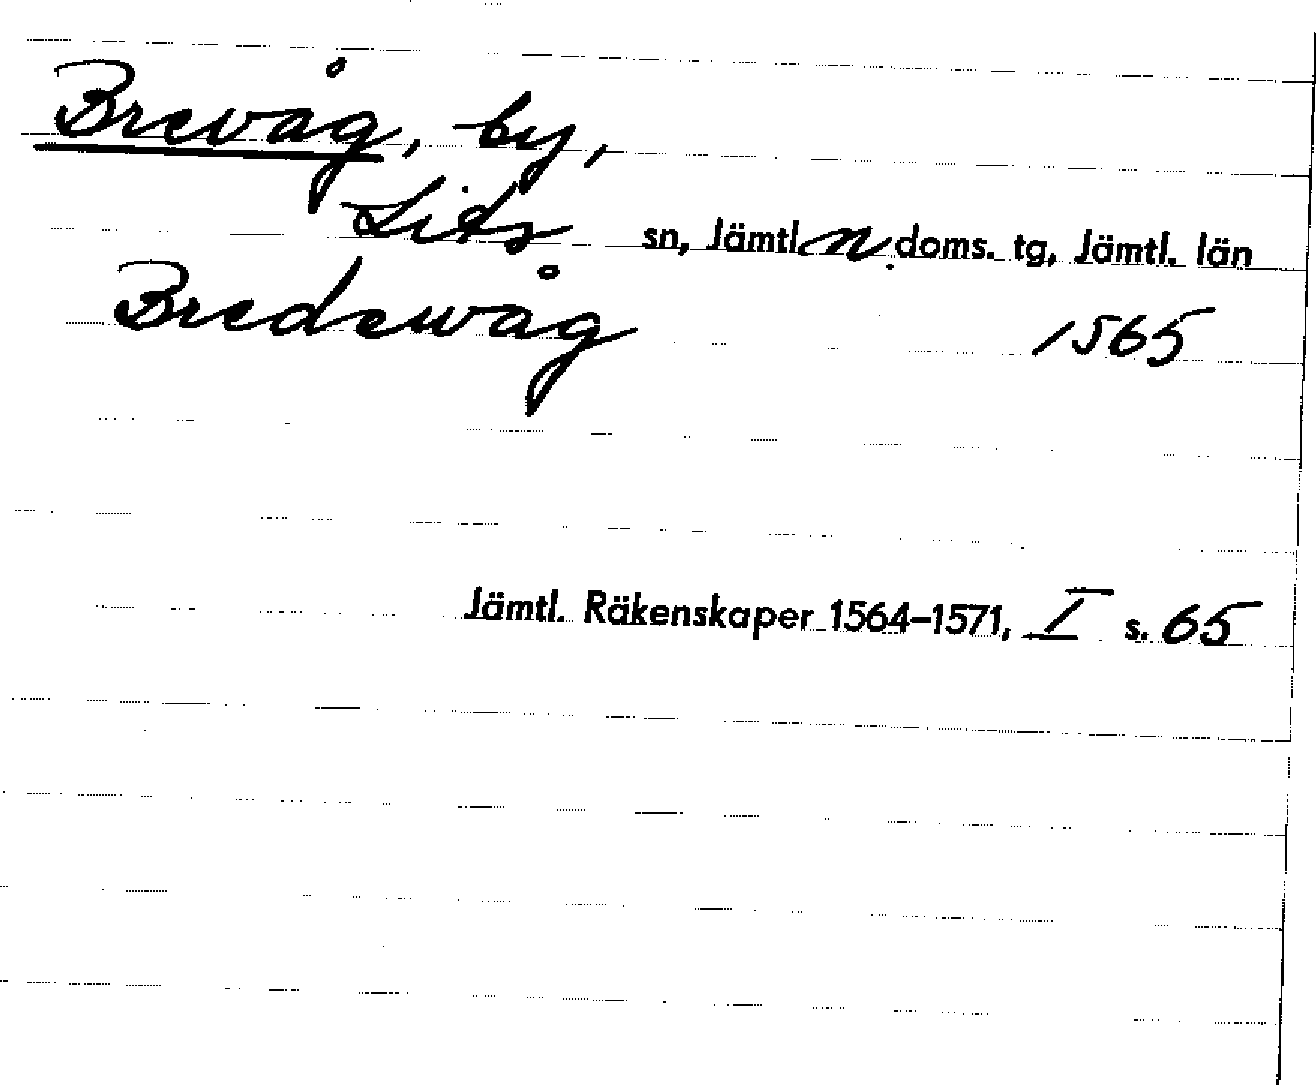 Brevåg, by,
Lits sn, Jämtl. n. doms. tg, Jämtl. län
Bredewåg 1565
Jämtl. Räkenskaper 1564-1571, I s. 65